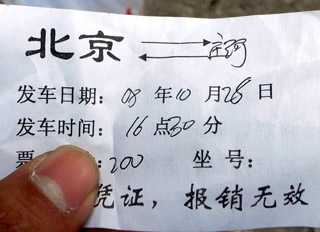 北京 ⇄ 庄河
发车日期: 08 年 10 月 28 日
发车时间: 16 点 30 分
票 : 200 坐 号:
凭证,报销无效